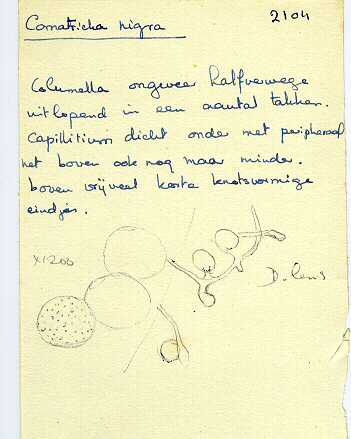 Comatricha nigra 2104
Columella ongeveer halfverwege
uitlopend in een aantal takken.
Capillitium dicht onder met peripheraal
net boven ook nog maar minder.
boven vrij veel korte knotsvormige
eindjes.
x1200
D. lens